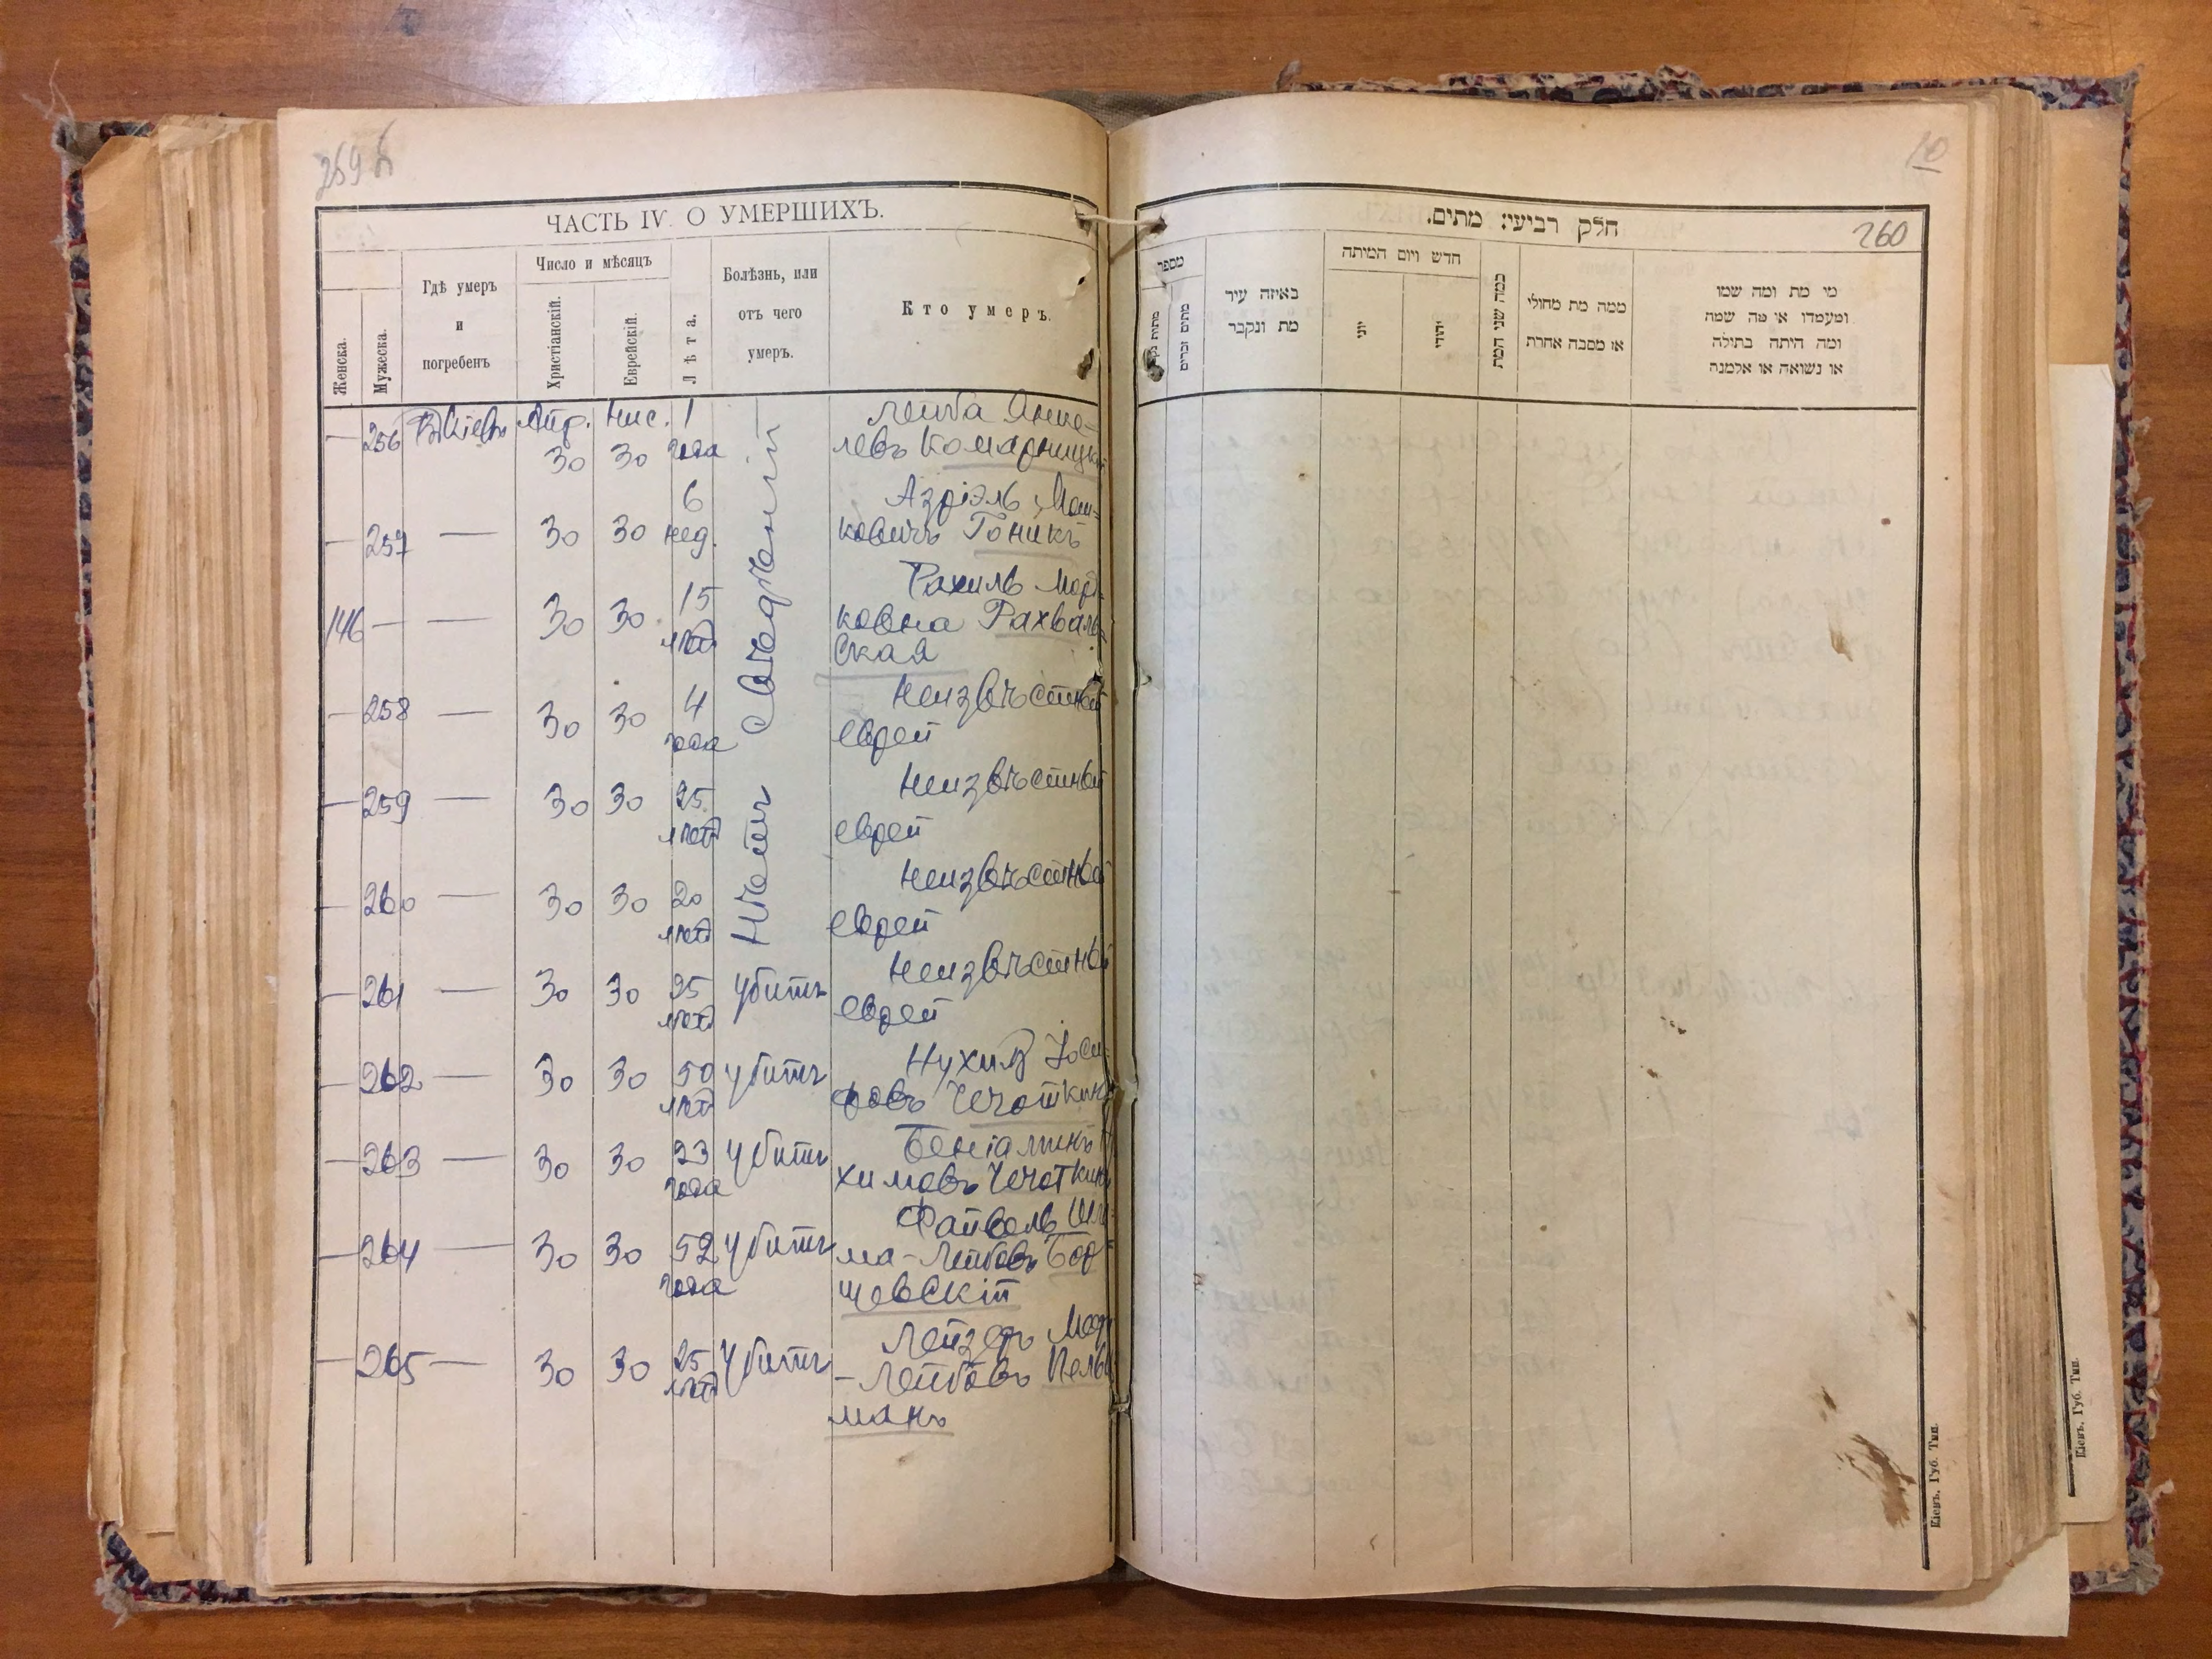 259 б
ЧАСТЬ IV. О УМЕРШИХЪ.
Женска.
Мужеска.
Гдѣ умеръ
и
погребенъ
Число и мѣсяцъ
Христіанскій.
Еврейскій.
Лѣта.
Болѣзнь, или
отъ чего
умеръ.
Кто умеръ.
— 256 Апр. Нис. 1 Лейба Янке-
30 30 года левъ Комарницкі
6 Азріэль Мош-
— 257 — 30 30 нед. ковичъ Гоникъ
15 Рахиль Мор
146 — — 30 30 лѣтъ ковна Рахваль-
ская
4 Неизвѣстный
— 258 — 30 30 года еврей
Неизвѣстный
— 259 — 30 30 25 лѣтъ еврей
Неизвѣстный
— 260 — 30 30 20 лѣтъ еврей
Нѣтъ свѣдѣній
Неизвѣстный
— 261 — 30 30 25 лѣтъ убитъ еврей
Нухимъ Іоси-
— 262 — 30 30 50 лѣтъ убитъ фовъ Чечоткинъ
Беніаминъ
— 263 — 30 30 23 года убитъ химовъ Чечоткинъ
Файвель
— 264 — 30 30 52 года убитъ ма-Лейбовъ
щевскій
Лейзеръ
— 265 — 30 30 25 лѣтъ убитъ -Лейбовъ
манъ
10
260
חלק רביעי: מתים.
מספר
מתים זכרים
באיזה עיר
מת ונקבר
חדש ויום המיתה
יוני
יהודי
כמה שני המת
ממה מת מחולי
או מסבה אחרת
מי מת ומה שמו
ומעמדו או מה שמה
ומה היתה בתולה
או נשואה או אלמנה
Кіевъ, Губ. Тип.
Кіевъ, Губ. Тип.